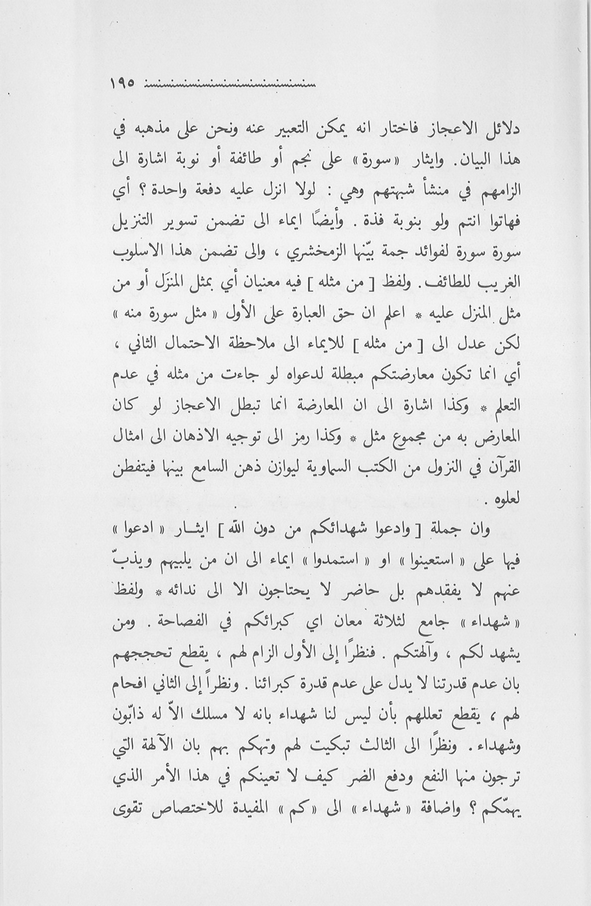 ١٩٥
دلائل الاعجاز فاختار انه يمكن التعبير عنه ونحن على مذهبه في
هذا البيان. وايثار «سورة» على نجم أو طائفة أو نوبة اشارة الى
الزامهم في منشأ شبهتهم وهي : لولا انزل عليه دفعة واحدة ؟ أي
فهاتوا انتم ولو بنوبة فذة . وأيضًا ايماء الى تضمن تسوير التنزيل
سورة سورة لفوائد جمة بيّنها الزمخشري ، والى تضمن هذا الاسلوب
الغريب للطائف. ولفظ [ من مثله ] فيه معنيان أي بمثل المنزَل أو من
مثل المنزل عليه * اعلم ان حق العبارة على الأول « مثل سورة منه »
لكن عدل الى [ من مثله ] للايماء الى ملاحظة الاحتمال الثاني ،
أي انما تكون معارضتكم مبطلة لدعواه لو جاءت من مثله في عدم
التعلم * وكذا اشارة الى ان المعارضة انما تبطل الاعجاز لو كان
المعارض به من مجموع مثل * وكذا رمز الى توجيه الاذهان الى امثال
القرآن في النزول من الكتب السماوية ليوازن ذهن السامع بينها فيتفطن
لعلوه .
وان جملة [ وادعوا شهدائكم من دون الله ] ايثار « ادعوا »
فيها على « استعينوا » او « استمدوا » ايماء الى ان من يلبيهم ويذبّ
عنهم لا يفقدهم بل حاضر لا يحتاجون الا الى ندائه * ولفظ
« شهداء » جامع لثلاثة معان اي كبرائكم في الفصاحة . ومن
يشهد لكم ، وآلهتكم . فنظرًا إلى الأول الزام لهم ، يقطع تحججهم
بان عدم قدرتنا لا يدل على عدم قدرة كبرائنا . ونظراً إلى الثاني افحام
لهم ، يقطع تعللهم بأن ليس لنا شهداء بانه لا مسلك الاّ له ذابّون
وشهداء . ونظرًا الى الثالث تبكيت لهم وتهكم بهم بان الآلهة التي
ترجون منها النفع ودفع الضر كيف لا تعينكم في هذا الأمر الذي
يهمّكم ؟ واضافة « شهداء » الى «كم» المفيدة للاختصاص تقوى